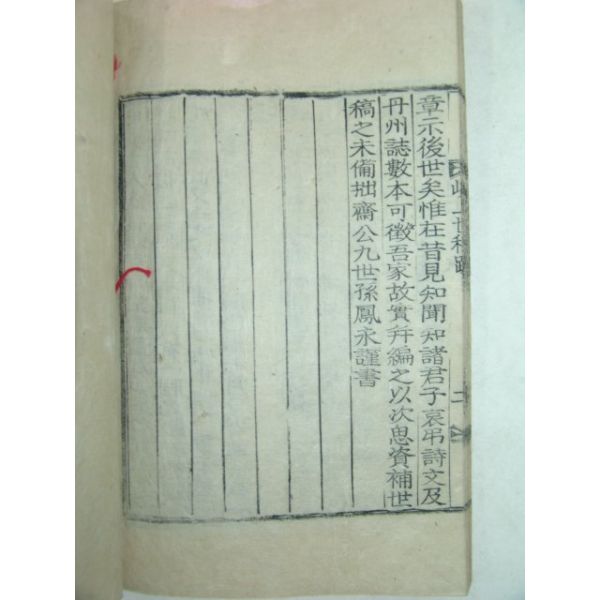 章示後世矣惟在昔見知聞知諸君子哀弔詩文及
丹州誌數本可徵吾家故實并編之以次思資補世
稿之未備拙齋公九世孫鳳永謹書
世稿跋
二